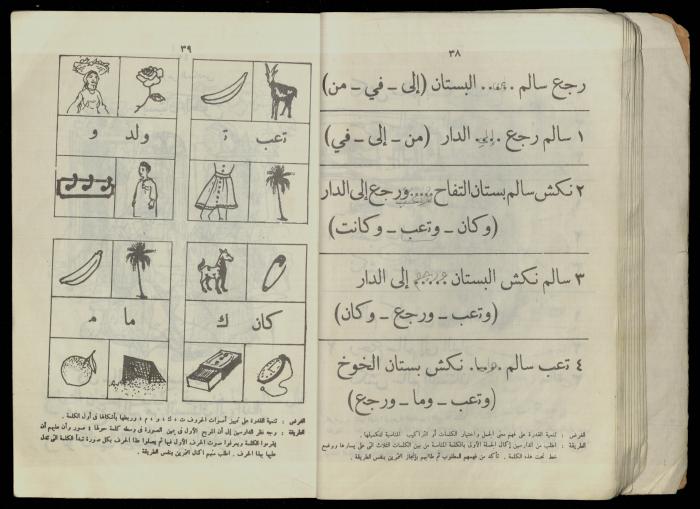 ٣٨
رجع سالم ..... البستان (إلى ـ في ـ من)
١ سالم رجع إلى الدار (من ـ إلى ـ في)
٢ نكش سالم بستان التفاح ..... ورجع إلى الدار
(وكان ـ وتعب ـ وكانت)
٣ سالم نكش البستان ..... إلى الدار
(وتعب ـ ورجع ـ وكان)
٤ تعب سالم ..... نكش بستان الخوخ
(وتعب ـ وما ـ ورجع)
الغرض : تنمية القدرة على فهم معنى الجمل واختيار الكلمات أو التراكيب المناسبة لتكميلها .
الطريقة : اطلب من الدارسين إكمال الجملة الأولى بالكلمة المناسبة من بين الكلمات الثلاث التى على يسارها ووضع
خط تحت هذه الكلمة . تأكد من فهمهم المطلوب ثم طالبهم بإنجاز التمرين بنفس الطريقة .
٣٩
تعب ة
ولد و
كان ك
ما م
الغرض : تنمية القدرة على تمييز أصوات الحروف ت ، ك ، و ، م ، وربطها بأشكالها فى أول الكلمة .
الطريقة : وجه نظر الدارسين إلى أن المربع الأول فى يمين الصورة فى وسطه كلمة حولها ٤ صور وأن عليهم أن
يقرءوا الكلمة ويعرفوا صوت الحرف الأول فيها ثم يصلوا هذا الحرف بكل صورة تبدأ الكلمة التى تدل
عليها بهذا الحرف . اطلب منهم إكمال التمرين بنفس الطريقة .